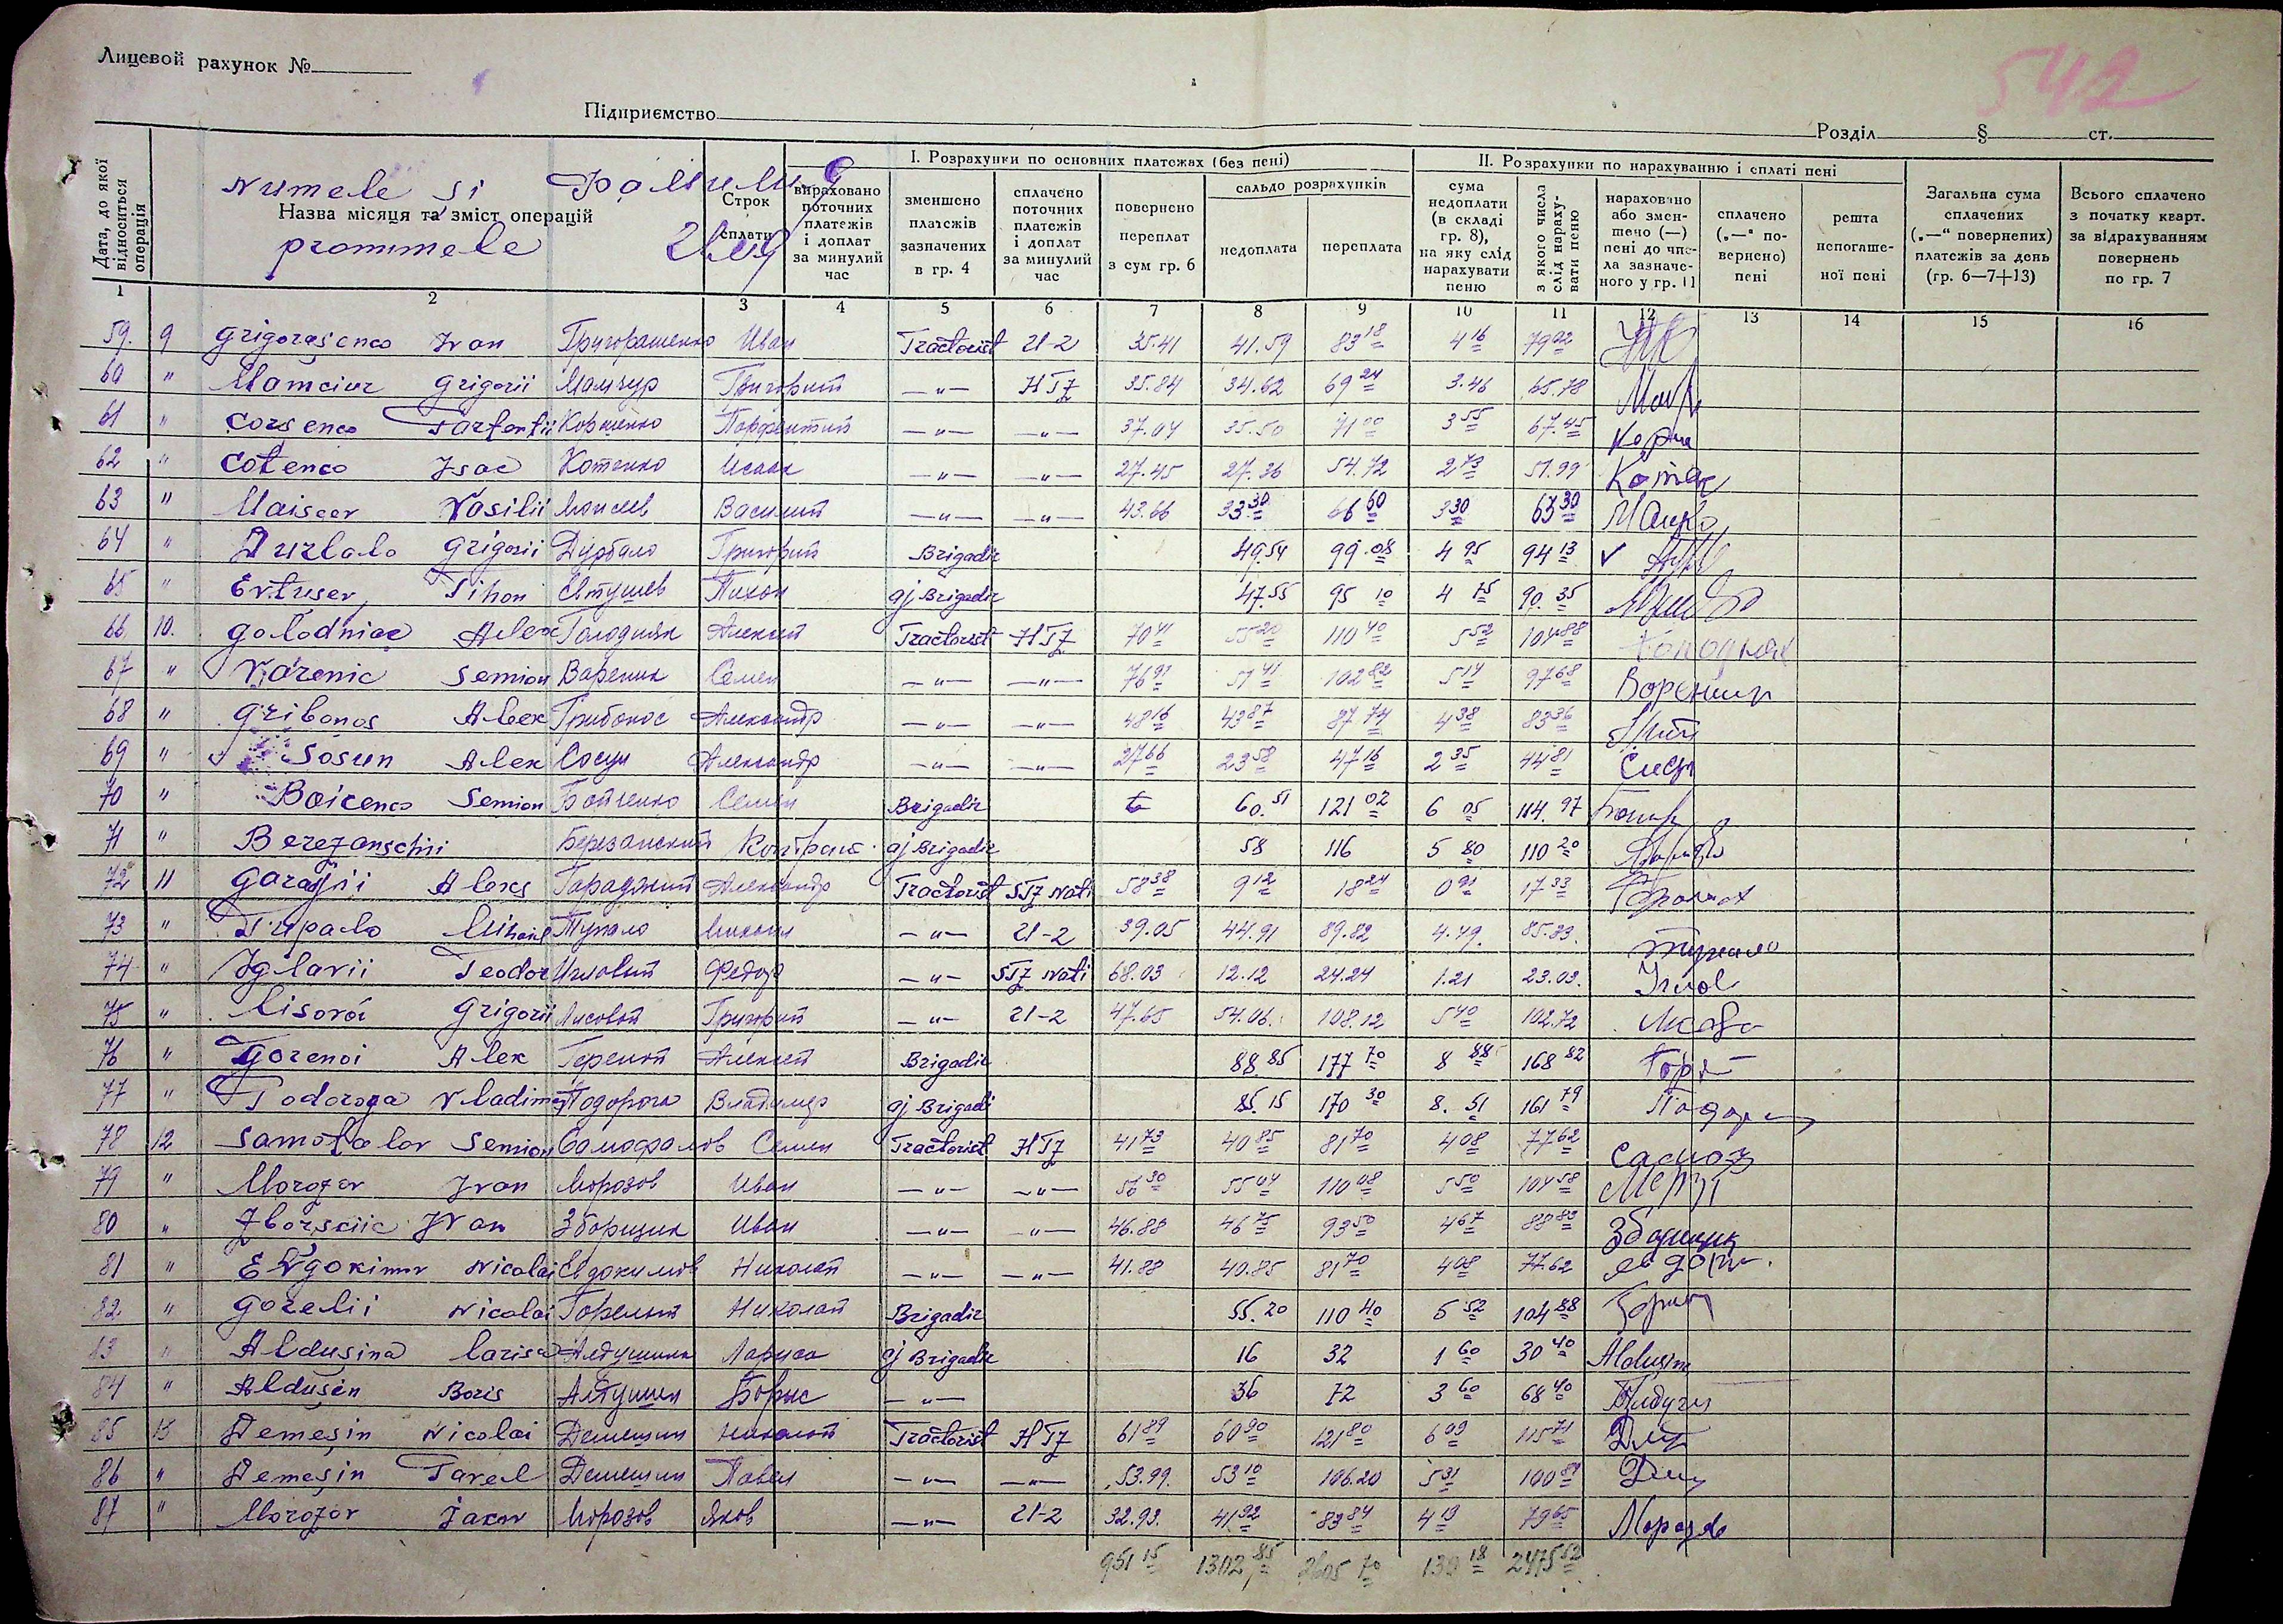 Лицевой рахунок №
542
Підприємство
Розділ § ст.
Дата, до якої відноситься операція
Numele și Фамилия
Назва місяця та зміст операцій
pronumele
Строк сплати
І. Розрахунки по основних платежах (без пені)
вираховано поточних платежів і доплат за минулий час
зменшено платежів зазначених в гр. 4
сплачено поточних платежів і доплат за минулий час
повернено переплат з сум гр. 6
сальдо розрахунків
недоплата переплата
ІІ. Розрахунки по нарахуванню і сплаті пені
сума недоплати (в складі гр. 8), на яку слід нарахувати пеню
з якого числа слід нараху-вати пеню
нараховано або змен-шено (—) пені до чис-ла зазначе-ного у гр. 11
сплачено („—“ по-вернено) пені
решта непогаше-ної пені
Загальна сума сплачених („—“ повернених) платежів за день (гр. 6—7+13)
Всього сплачено з початку кварт. за відрахуванням повернень по гр. 7
1 2 3 4 5 6 7 8 9 10 11 12 13 14 15 16
59. 9 Grigorașenco Ivan Григорашенко Иван Tractorist U-2 35.41 41.59 83 18 4 16 79 02
60 " Mamciur Grigorii Мамчур Григорий —"— HTZ 35.84 34.62 69 24 3.46 65.78
61 " Corșenco Parfentii Коршенко Парфентий —"— —"— 37.04 35.50 71 00 3 55 67.45 Корш
62 " Cotenco Isac Котенко Исаак —"— —"— 27.45 27.36 54.72 2 73 51.99
63 " Maiseev Vasilii Моисеев Василий —"— —"— 43.66 33 30 66 60 3 30 63 30
64 " Durbalo Grigorii Дурбало Григорий Brigadir 49.54 99.08 4 95 94 13 ✓
65 " Evtușev Tihon Евтушев Тихон aj Brigadir 47.55 95 10 4 75 90.35
66 10. Golodniac Alex Голодняк Алексей Tractorist HTZ 70 41 55 20 110 40 5 52 104 88
67 " Varenic Semion Вареник Семен —"— —"— 76 91 51 41 102 82 5 14 97 68
68 " Gribonos Alex Грибонос Александр —"— —"— 48 16 43 87 87 74 4 38 83 36
69 " ✓ Sosun Alex Сосун Александр —"— —"— 27 66 23 58 47 16 2 35 44 81
70 " Boicenco Semion Бойченко Семен Brigadir 60.51 121 02 6 05 114.97
71 " Berezanschii Березанский aj Brigadir 58 116 5 80 110 20
72 11 Garagii Alexs Гараджий Александр Tractorist STZ Nati 58 38 9 12 18 24 0 91 17 33
73 " Tupalo Mihail Тупало Михаил —"— U-2 39.05 44.91 89.82 4.49. 85.33. Тупало
74 " Iglavii Teodor Иглавий Федор —"— STZ Nati 68.03 12.12 24.24 1.21 23.03.
75 " Lisovoi Grigorii Лисовой Григорий —"— U-2 47.65 54.06. 108.12 5 40 102.72
76 " Gorenoi Alex Гореной Алексей Brigadir 88.85 177 70 8 88 168 82
77 " Podoroga Vladimir Подорога Владимир aj Brigadi 85.15 170 30 8.51 161 79
78 12 Samofalov Semion Самофалов Семен Tractorist HTZ 41 73 40 85 81 70 4 08 77 62
79 " Morozov Ivan Морозов Иван —"— —"— 56 30 55 04 110 08 5 50 104 58
80 " Zborșciic Ivan Зборщик Иван —"— —"— 46.88 46 75 93 50 4 67 88 83 Зборщик
81 " Evdokimov Nicolai Евдокимов Николай —"— —"— 41.88 40.85 81 70 4 08 77.62
82 " Gorelii Nicolai Горелый Николай Brigadir 55.20 110 40 5 52 104 88
83 " Aldușina Larisa Алдушина Лариса aj Brigadir 16 32 1 60 30 40 Aldușina
84 " Aldușin Boris Алдушин Борис —"— 36 72 3 60 68 40
85 13 Demeșin Nicolai Демешин Николай Tractorist HTZ 61 89 60 90 121 80 6 09 115 71
86 " Demeșin Pavel Демешин Павел —"— —"— 53.99. 53 10 106.20 5 31 100 89
87 " Morozov Jacov Морозов Яков —"— U-2 32.93. 41 92 83 84 4 19 79 65
951 15 1302 85 2605 70 130 18 2475 52